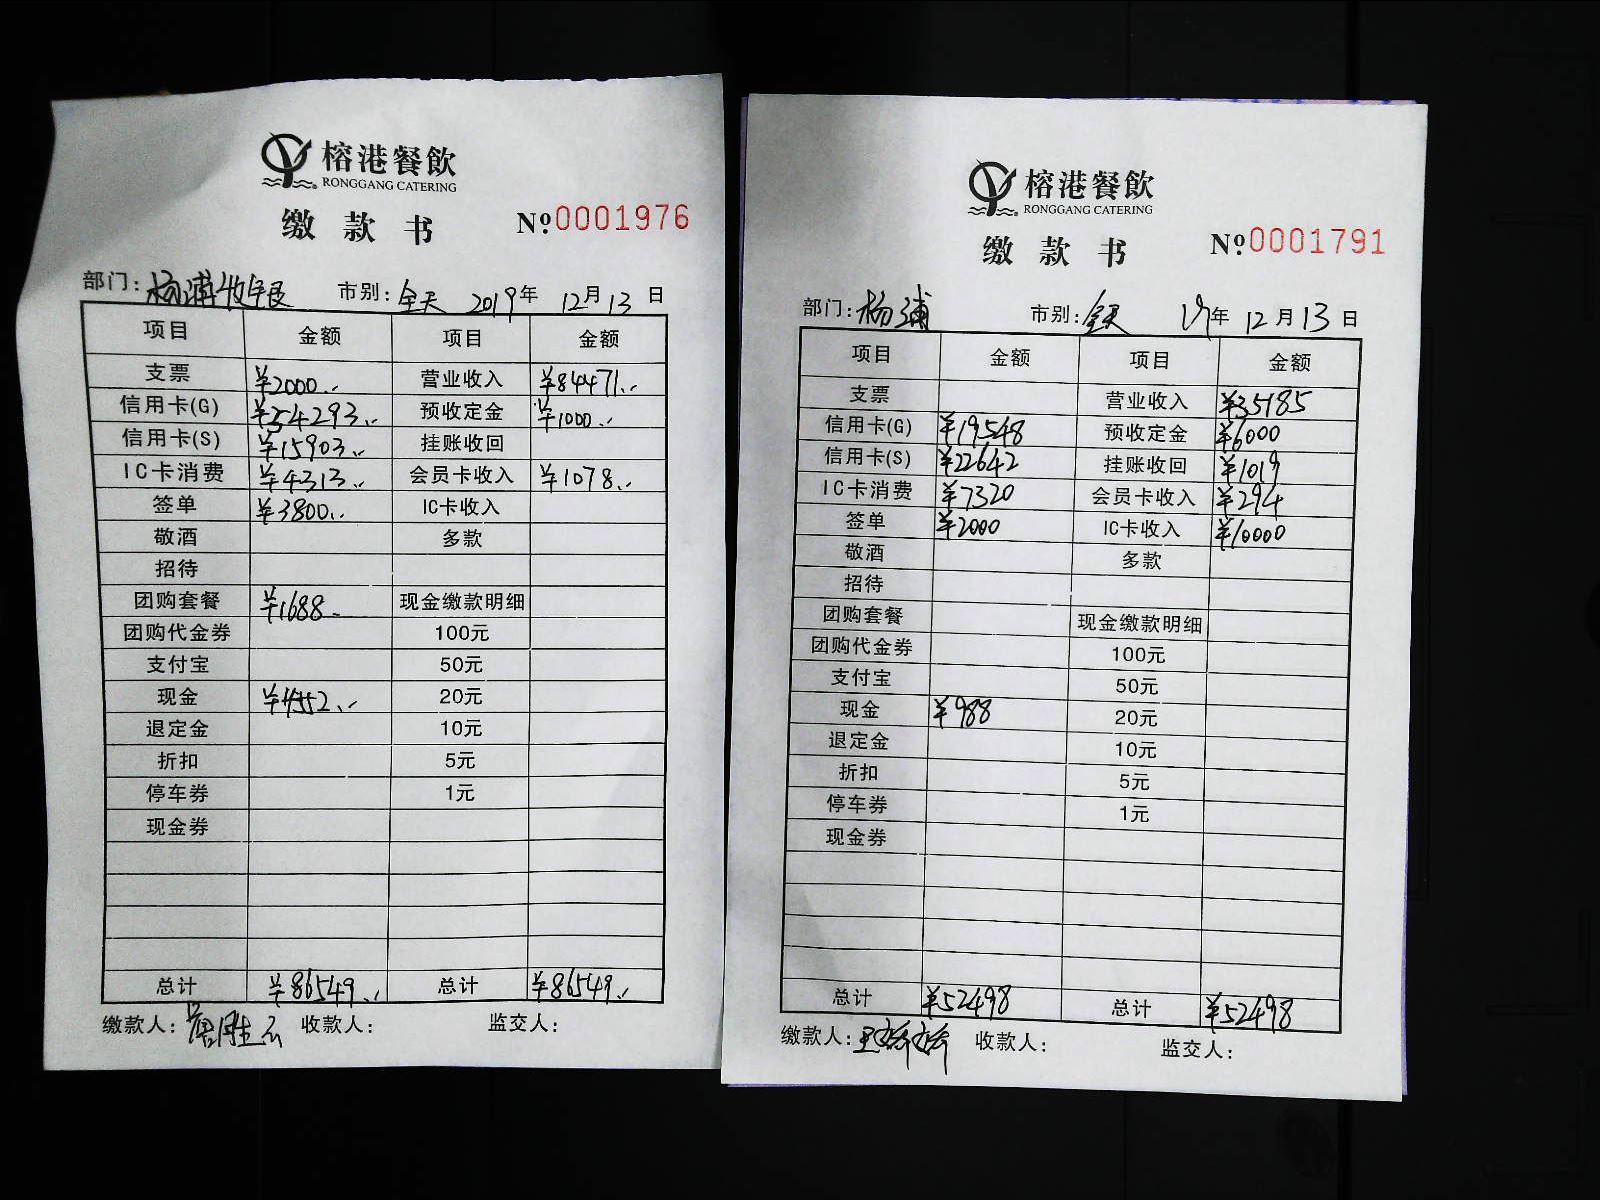 榕港餐飲
RONGGANG CATERING
缴款书 №0001976
部门：杨浦 市别：全天 2019年 12月13日
项目 金额 项目 金额
支票 ¥2000.- 营业收入 ¥84471.-
信用卡(G) ¥54293.- 预收定金 ¥1000.-
信用卡(S) ¥15903.- 挂账收回
IC卡消费 ¥4313.- 会员卡收入 ¥1078.-
签单 ¥3800.- IC卡收入
敬酒 多款
招待
团购套餐 ¥1688.- 现金缴款明细
团购代金券 100元
支付宝 50元
现金 ¥4552.- 20元
退定金 10元
折扣 5元
停车券 1元
现金券
总计 ¥86549.- 总计 ¥86549.-
缴款人： 收款人： 监交人：
榕港餐飲
RONGGANG CATERING
缴款书 №0001791
部门：杨浦 市别：全天 19年 12月13日
项目 金额 项目 金额
支票 营业收入 ¥35185
信用卡(G) ¥19548 预收定金 ¥6000
信用卡(S) ¥22642 挂账收回 ¥1019
IC卡消费 ¥7320 会员卡收入 ¥294
签单 ¥2000 IC卡收入 ¥10000
敬酒 多款
招待
团购套餐 现金缴款明细
团购代金券 100元
支付宝 50元
现金 ¥988 20元
退定金 10元
折扣 5元
停车券 1元
现金券
总计 ¥52498 总计 ¥52498
缴款人： 收款人： 监交人：